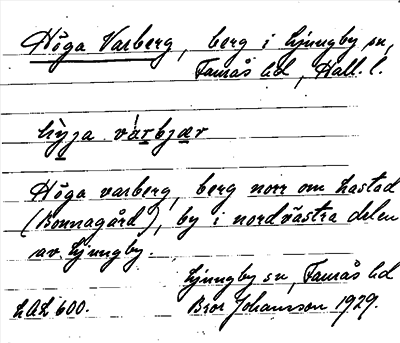 Höga Varberg, berg i Ljungby sn,
Faurås hd, Hall. l.
hy̲ja varb̲jær
Höga varberg, berg norr om Lastad
(Bonnagård), by i nordvästra delen
av Ljungby.
Ljungby sn, Faurås hd
LAL 600. Bror Johansson 1929.